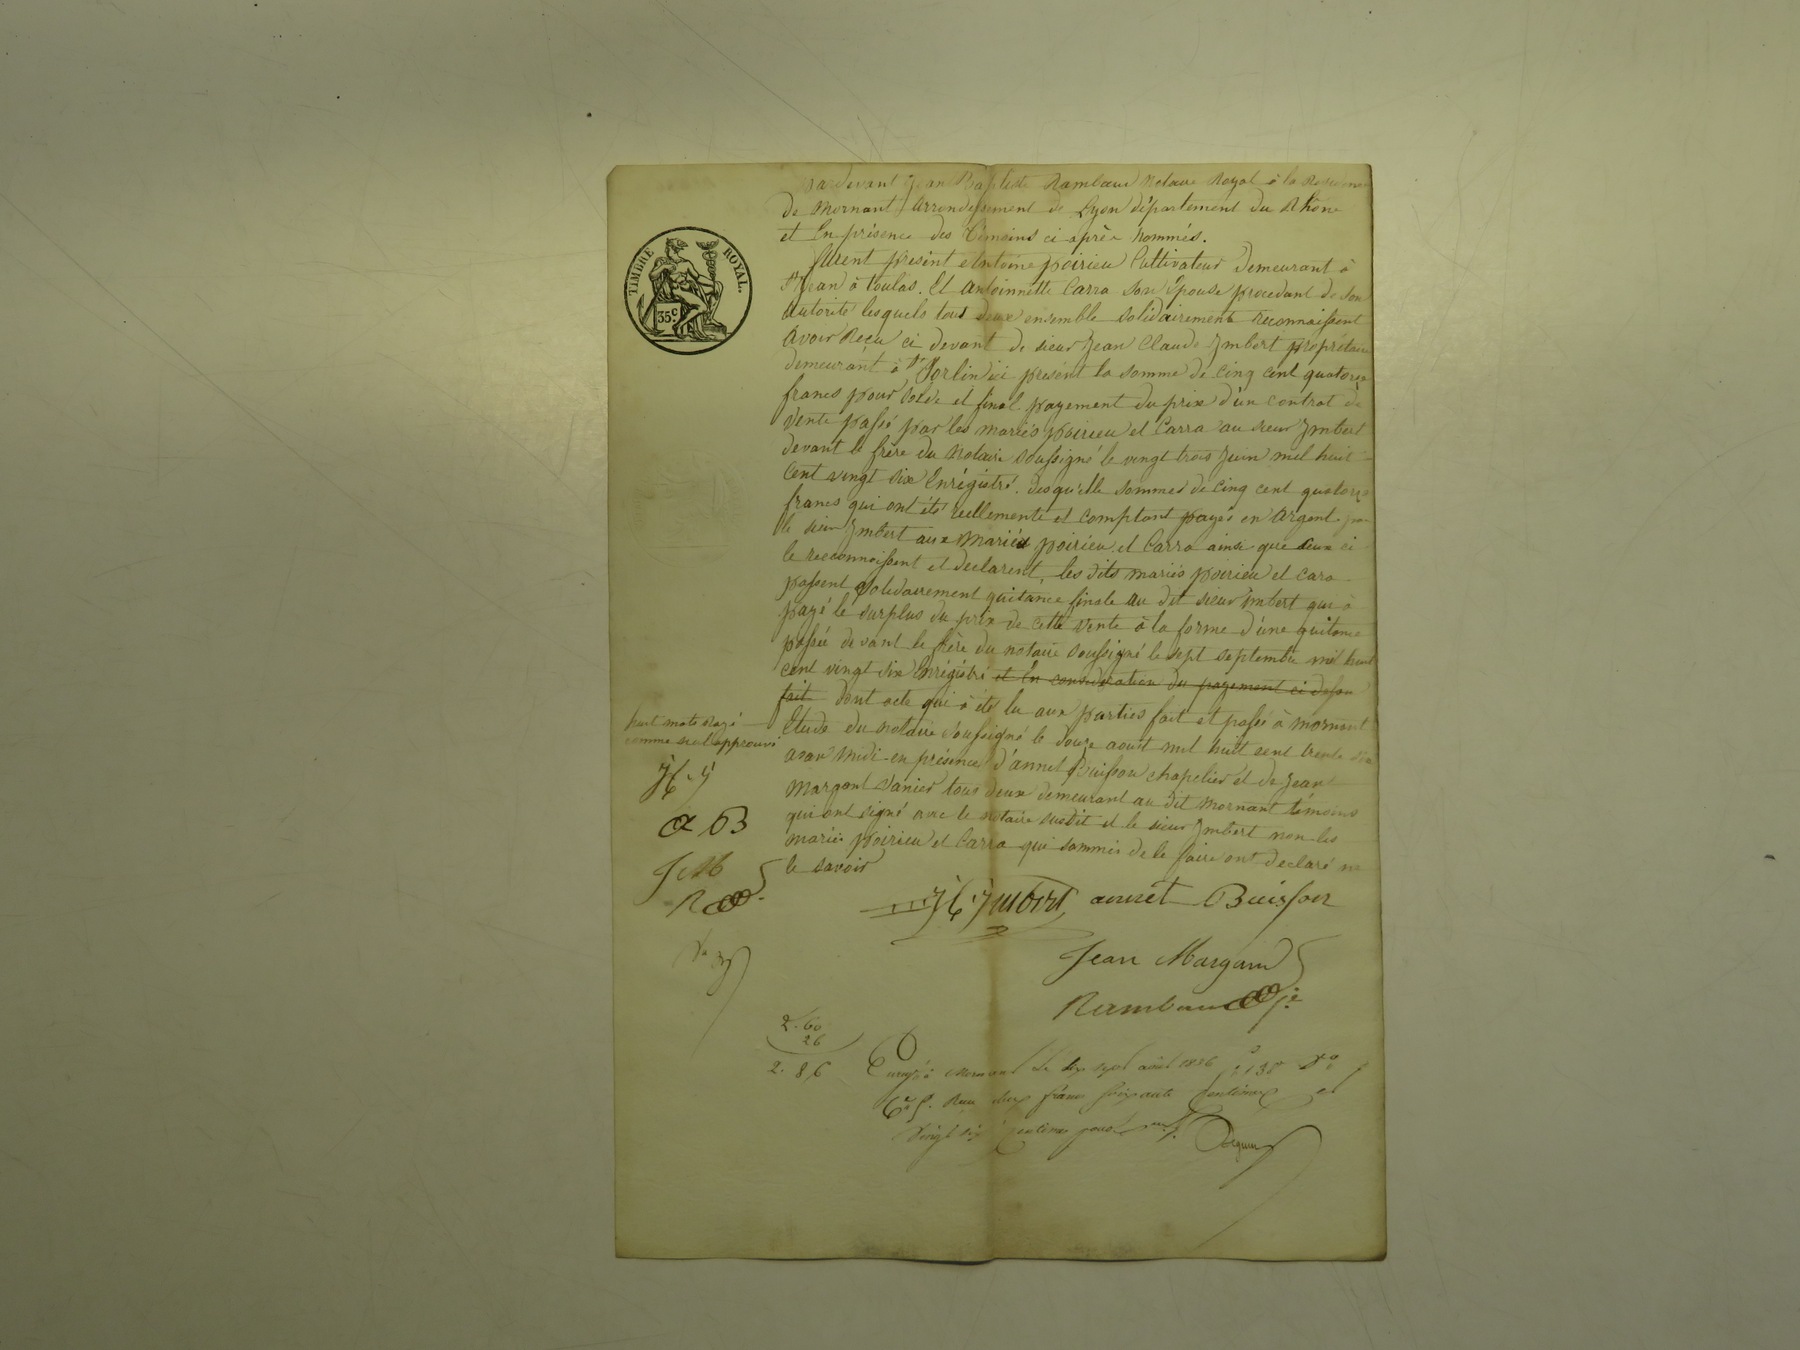 pardevant Jean Baptiste Rambaud Notaire Royal à la Residence
de Mornant Arrondissement de Lyon département du Rhône
et En présence des Témoins ci après nommés.
TIMBRE ROYAL.
35 c.
furent présent Antoine poirieu Cultivateur demeurant à
St Jean à toulas. Et Antoinnette Carra son Epouse procedant de son
Autorité lesquels tous deux ensemble solidairement reconnaissent
Avoir Reçu ci devant de sieur Jean Claude Ymbert propriétaire
demeurant à St Sorlin ici présent la somme de cinq cent quatorze
francs pour solde et final payement du prix d'un contrat de
vente passé par les mariés poirieu et Carra au sieur Ymbert
devant le frère du Notaire soussigné le vingt trois Juin mil huit
cent vingt six Enrégistré. desquelle sommes de cinq cent quatorze
francs qui ont été réellemente et comptant payés en argent par
le sieur Ymbert aux Mariés poirieu et Carra ainsi que ceux ci
le reconnoissent et declarent, les dits mariés poirieu et cara
passent solidairement quitance finale au dit sieur Ymbert qui à
payé le surplus du prix de cette vente à la forme d'une quitance
passée devant le frère du notaire soussigné le sept septembre mil huit
cent vingt six Enrégistré et En considération du payement ci dessu
fait dont acte qui à été lu aux parties fait et passé à Mornant
Etude du notaire soussigné le douze aoust mil huit cent trente six
avan midi en présence d'annet Buisson chapelier et de Jean
Margant vanier tous deux demeurant au dit Mornant témoins
qui ont signé avec le notaire susdit et le sieur Ymbert non les
mariés poirieu et Carra qui sommés de le faire ont declaré ne
le savoir
huit mots rayé
comme nul approuvé
JC Y
A B
J M
R
JC Ymbert annet Buisson
Jean Margand
Rambaud
2. 60
26
2. 86
Enregé à Mornant le dix sept août 1836 f° 138 V°
C 6e Reçu deux francs soixante centimes et
vingt six centimes pour